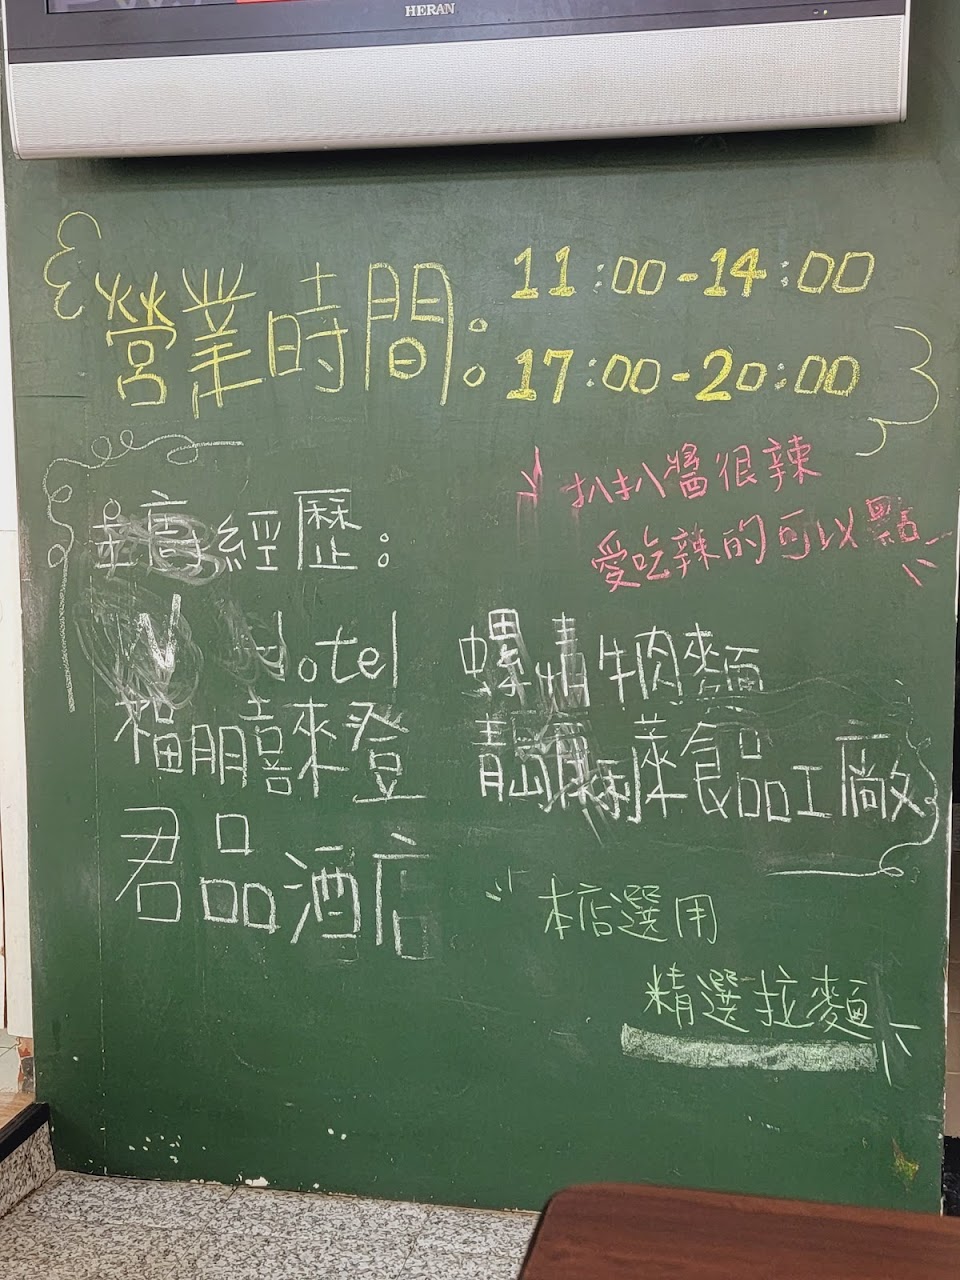 HERAN
營業時間: 11:00-14:00
17:00-20:00
扒扒醬很辣
愛吃辣的可以點
主廚經歷:
W Hotel
福朋喜來登
君品酒店
牛肉麵
食品工廠
本店選用
精選拉麵